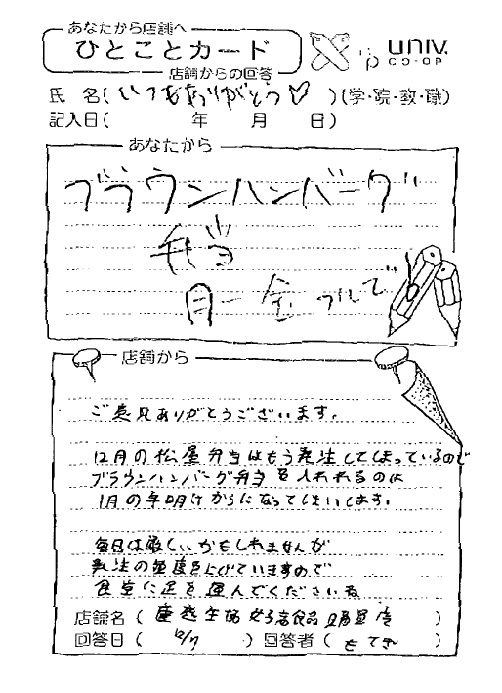 あなたから店舗へ
ひとことカード
店舗からの回答
univ.
CO-OP
氏 名(いつもありがとう♡)(学・院・教・職)
記入日( 年 月 日)
あなたから
ブラウンハンバーグ
弁当
月〜金 つんで
店舗から
ご意見ありがとうございます。
12月の仏屋弁当はもう発注してしまっているので
ブラウンハンバーグ弁当を入れれるのは
1月の年明けからになってしまいます。
毎日は厳しいかもしれませんが
発注の頻度を上げていきますので
食堂に足を運んでくださいね
店舗名( 慶應生協 食品 )
回答日( 12/7 )回答者( もてぎ )